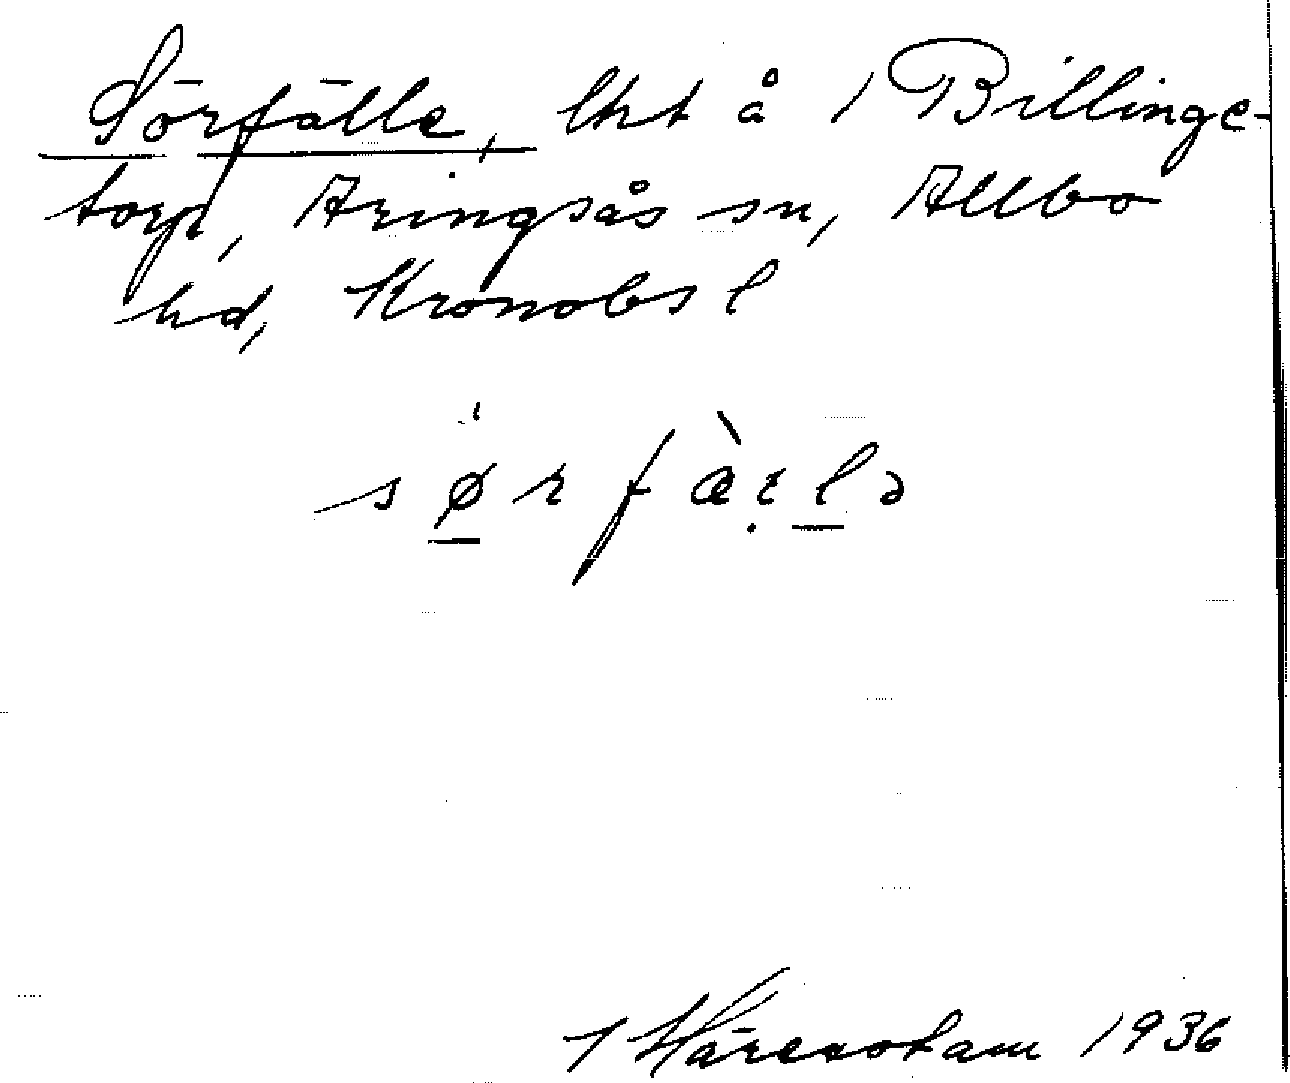 Sörfälle, lht å 1 Billinge-
torp, Aringsås sn, Allbo
hd, Kronobs l
sørfæ̀ılə
1936